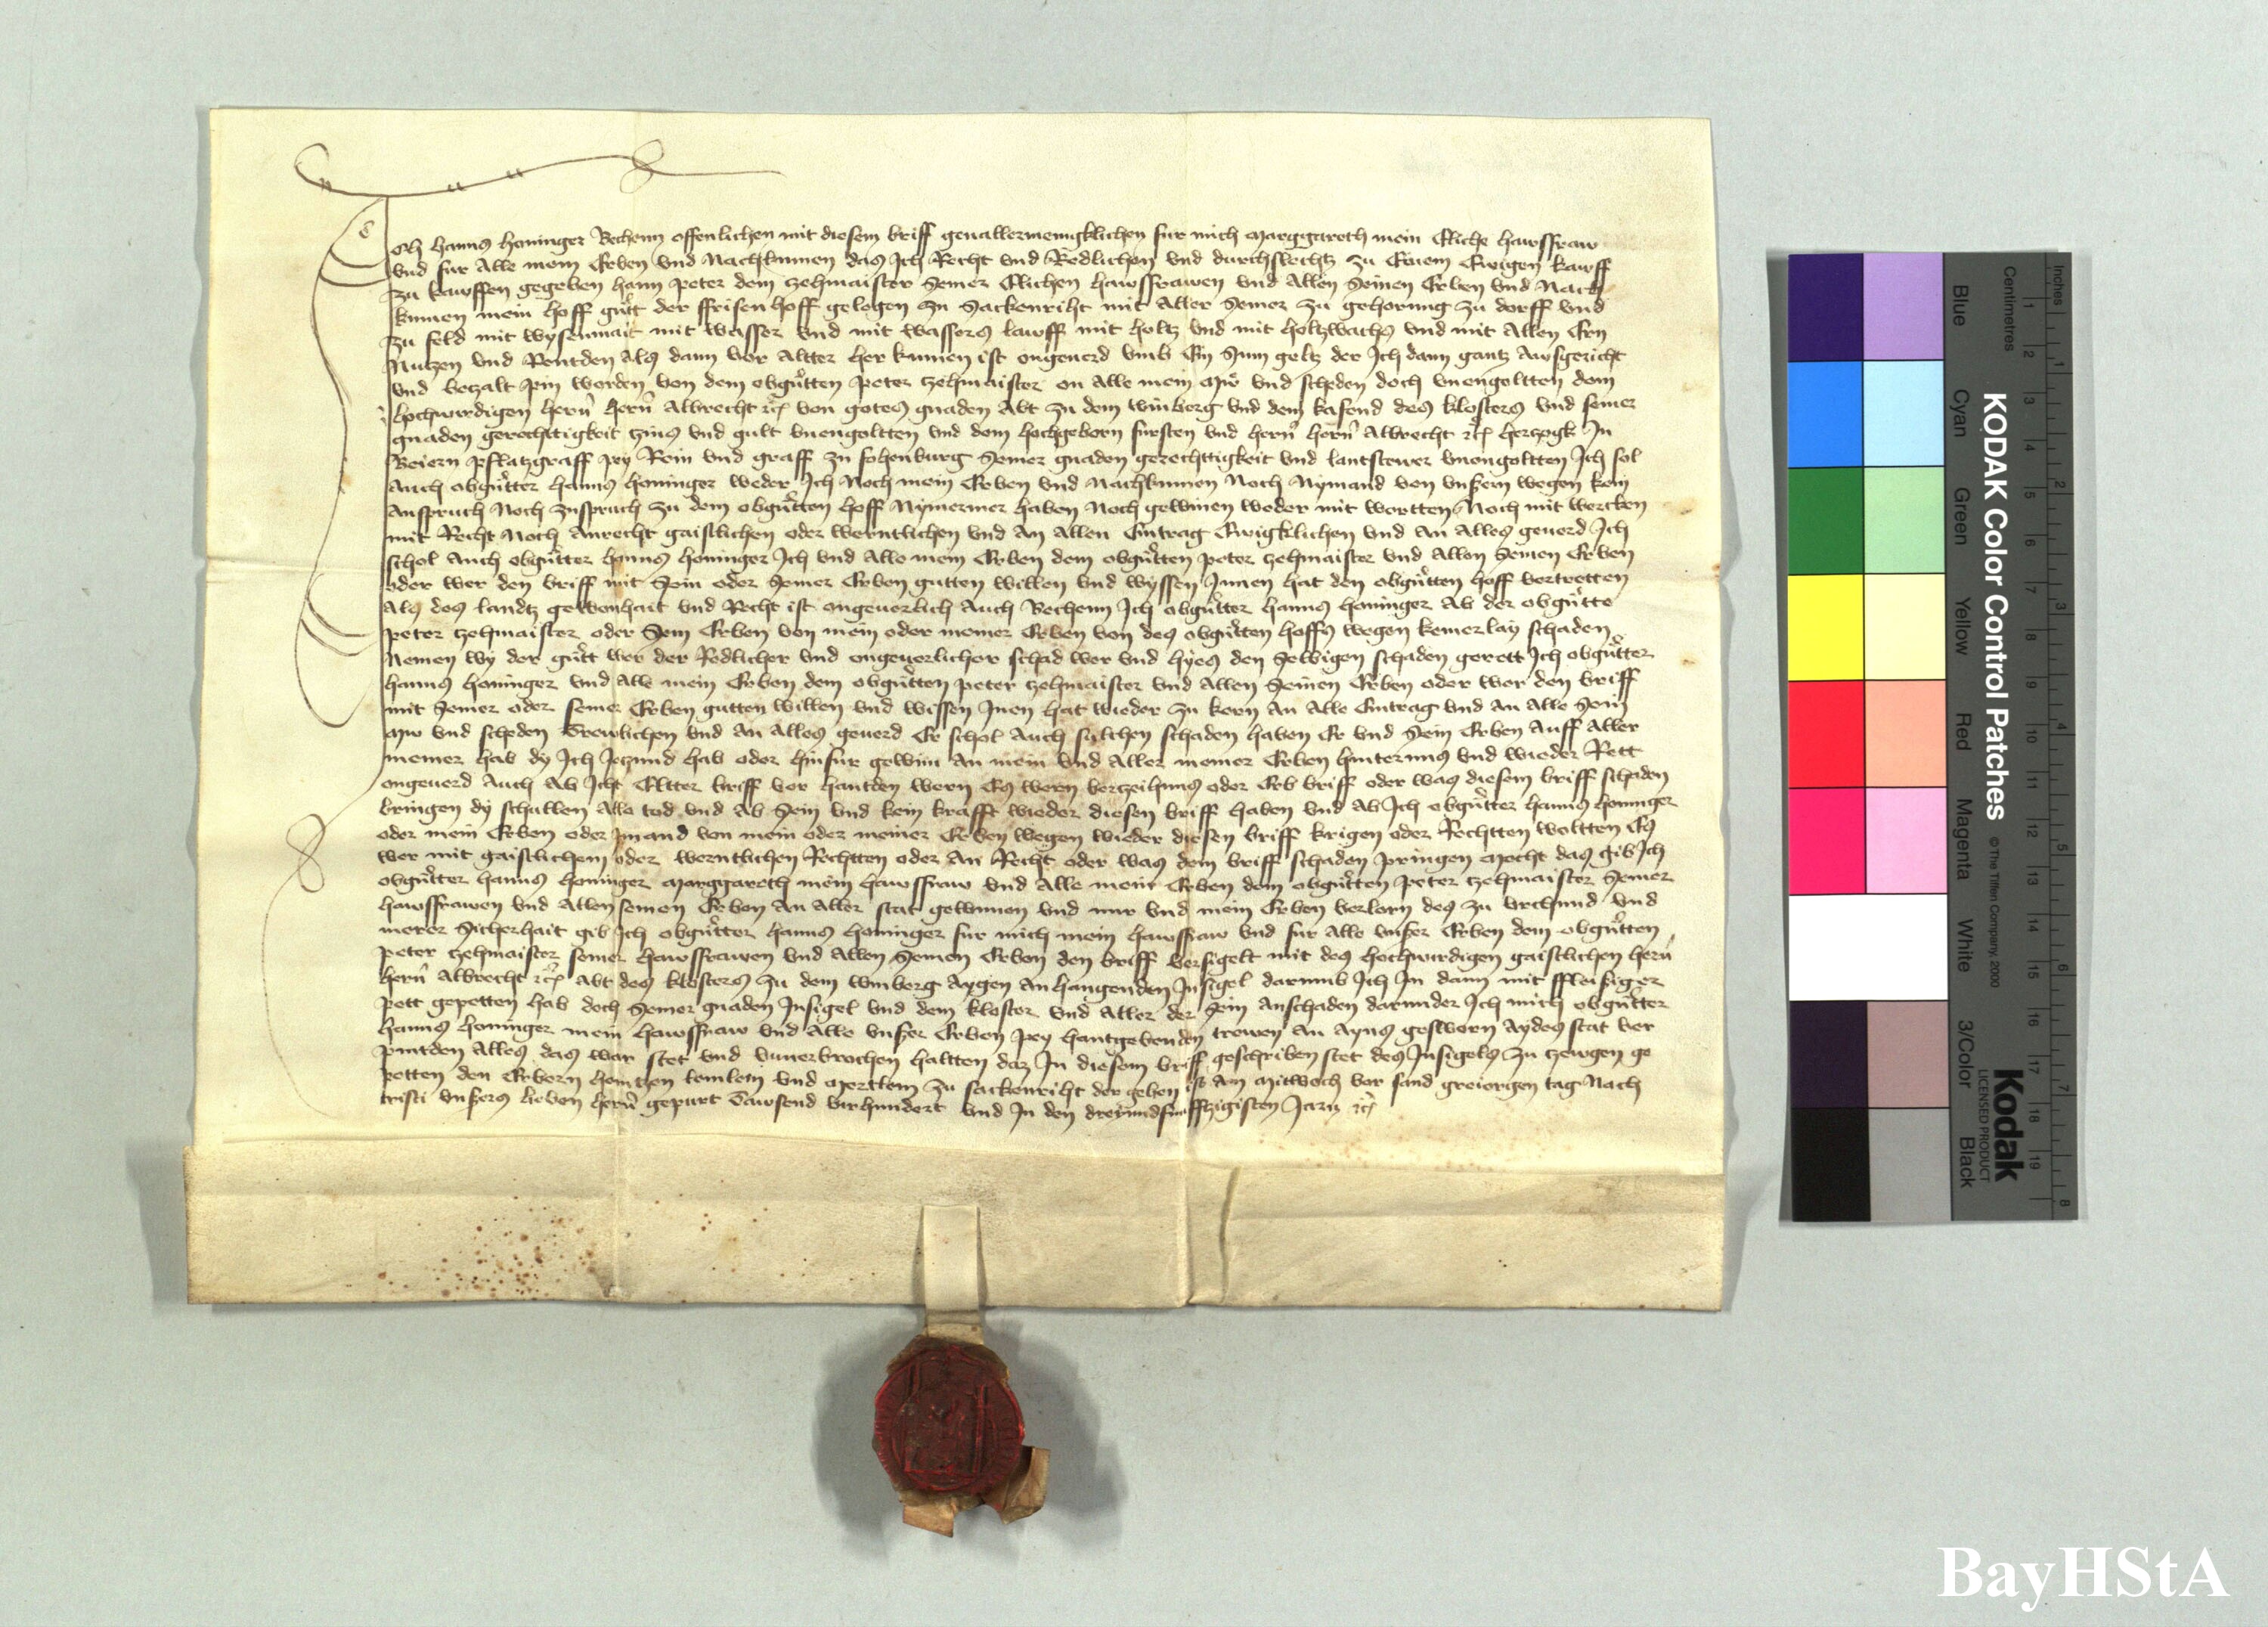 Ich hanns honinger Bechenn offenlichen mit diesem briff genallermenigklichen fur mich marggareth mein Eliche hawsfraw
vnd fur Alle mein Erben vnd Nachkumen das Ich Recht vnd Redlichen vnd durchslechtz zu Einem Ewigen kawff
zu kawffen gegeben hann peter dem zehmaister Seiner Elichen hawsfrawen vnd Allen Seinen Erben vnd Nach
kumen mein hoff gutt der ffrisen hoff gelegen zu Sackenriht mit Aller Seiner zu gehorung zu dorff vnd
zu feld mit wysenmait mit wasser vnd mit wassers lawff mit holtz vnd mit holtzwachs vnd mit Allen Ern
Nutzen vnd Rentden Als dann vor Altter her kumen ist ongeuerd vmb Ein Sum geltz der Ich dann gantz Awsgericht
vnd betzalt pin worden von dem obgutten peter zehmaister on Alle mein mw vnd scheden doch vnengoltten dem
hochwirdigen hern hern Albrecht etc von gotes gnaden Abt zu dem winberg vnd dem kasend des klosters vnd seiner
gnaden gerechttigkeit zins vnd gult vnengoltten vnd dem hochgeborn fursten vnd hern hern Albrecht etc hertzogk In
Beiern pfaltzgraff pey Rein vnd graff zu fohenburg Seiner gnaden gerechttigkeit vnd lantstewer vnengoltten Ich sol
Auch obgutter hanns honinger weder Ich Noch mein Erben vnd Nachkumen Noch Nymand von vnsern wegen kein
Anspruch Noch zuspruch zu dem obgutten hoff Nymermer haben Noch gewinen weder mit wortten Noch mit wercken
mit Recht Noch Anrecht gaistlichen oder werntlichen vnd An Allen Eintrag Ewigklichen vnd An Alles geuerd Ich
schol Auch obgutter hanns honinger Ich vnd Alle mein Erben dem obgutten peter zehmaister vnd Allen Seinen Erben
oder wer den briff mit Sein oder Seiner Erben gutten willen vnd wyssen Innen hat den obgutten hoff vertretten
Als des landtz gewonhait vnd Recht ist ongeuerlich Auch Bechenn Ich obgutter hanns honinger Ab der obgutte
peter zehmaister oder Sein Erben von mein oder meiner Erben von des obgutten hoffs wegen keinerlay schaden
Nemen wy der gutt wer der Redlicher vnd ongeuerlicher schad wer vnd hyes den Selbigen schaden gerett Ich obgutter
hanns honinger vnd Alle mein Erben dem obgutten peter zehmaister vnd Allen Seinen Erben oder wer den briff
mit Seiner oder seiner Erben gutten willen vnd wissen Inen hat wieder zu kern An Alle Eintrag vnd An Alle Sein
mw vnd scheden Trewlichen vnd An Alles geuerd Er schol Auch sulchen schaden haben Er vnd Sein Erben Auff Aller
meiner hab dy Ich Ietzund hab oder hinfur gewinn An mein vnd Aller meiner Erben hinternus vnd wieder Rett
ongeuerd Auch Ab Icht Eltter briff vor hantden wern Es wern vertzeihung oder Erb briff oder was diesem briff schaden
bringen dy schullen Alle tod vnd Ab Sein vnd kein krafft wieder diesen briff haben vnd Ab Ich obgutter hanns honinger
oder mein Erben oder Imand von mein oder meiner Erben wegen wieder diesen briff krigen oder Rechtten woltten Es
wer mit gaistlichem oder werntlichen Rechtten oder An Recht oder was dem briff schaden pringen mocht das gib Ich
obgutter hanns honinger marggareth mein hawsfraw vnd Alle mein Erben dem obgutten peter zehmaister Seiner
hawsfrawen vnd Allen seinen Erben An Aller stat gewunnen vnd mir vnd mein Erben verlorn des zu vrchund vnd
merer Sicherhait gib Ich obgutter hanns honinger fur mich mein hawsfraw vnd fur Alle vnser Erben dem obgutten
peter zehmaister seiner hawsfrawen vnd Allen Seinen Erben den briff versigelt mit des hochwirdigen gaistlichen hern
hern Albrecht etc Abt des klosters zu dem winberg Aygen Anhangenden Insigel darumb Ich In dann mit ffleissiger
pett gepetten hab doch Seiner gnaden Insigel vnd dem kloster vnd Aller der Sein Anschaden darunder Ich mich obgutter
hanns honinger mein hawsfraw vnd Alle vnser Erben pey hantgebenden trewen An Ayns geswern Aydes stat ver
pintden Alles das war stet vnd vnuerbrochen haltten daz In diesem briff geschriben stet des Insigels zu zewgen ge
petten den Erbern heintzen lemlein vnd mertlein zu sackenriht der geben ist Am Mitwoch vor sand greiorgen tag Nach
cristi vnsers lieben hern gepurt Tawsend virhundert vnd In den dreyundfunfftzigisten Jarn etc
KODAK Color Control Patches
© The Tiffen Company, 2000
Kodak
LICENSED PRODUCT
Inches
Centimetres
Blue
Cyan
Green
Yellow
Red
Magenta
White
3/Color
Black
BayHStA